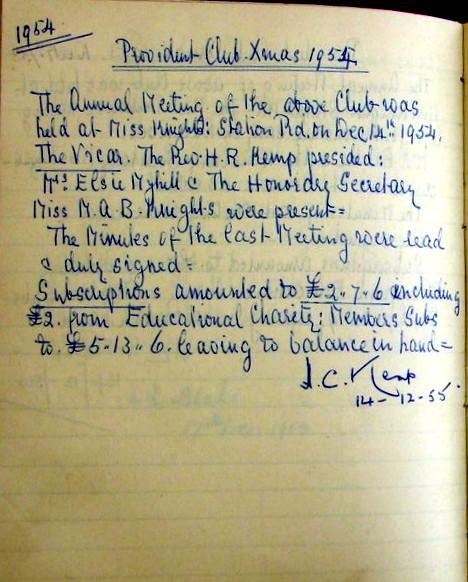 1954
Provident Club. Xmas 1954.
The Annual Meeting of the above Club was
held at Miss Knights: Station Rd. on Dec 14th 1954.
The Vicar. The Rev. H. R. Kemp presided:
Mrs Elsie Myhill & The Honorary Secretary
Miss M. A. B. Knights were present =
The Minutes of the last Meeting were read
& duly signed =
Subscriptions amounted to £2-7-6 including
£2. from Educational Charity: Members Subs
to £5-13-6. leaving no balance in hand =
Kemp
14-12-55.